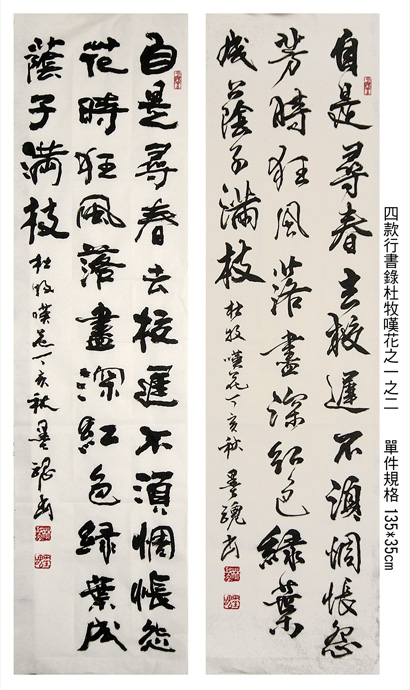 四款行書錄杜牧嘆花之一之二 單件規格 135*35cm
自是尋春去校遲不湏惆悵怨
芳時狂風落盡深紅色綠葉
成蔭子滿枝 杜牧嘆花丁亥秋 墨魂書
自是尋春去校遲不湏惆悵怨
花時狂風落盡深紅色綠葉成
蔭子滿枝 杜牧嘆花丁亥秋墨魂書